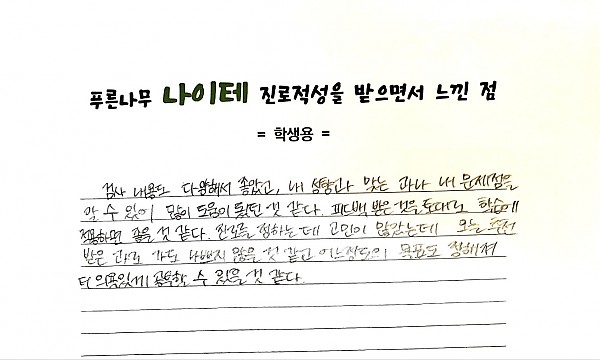 푸른나무 나이테 진로적성을 받으면서 느낀 점
= 학생용 =
검사 내용도 다양해서 좋았고, 내 성향과 맞는 과나 내 문제점을
알 수 있어 많이 도움이 됐던 것 같다. 피드백 받은 것을 토대로 학습에
적용하면 좋을 것 같다. 진로를 정하는데 고민이 많았는데 오늘 추천
받은 과로 가도 나쁘지 않을 것 같고 어느정도의 목표도 정해져
더 의욕있게 공부할 수 있을 것 같다.